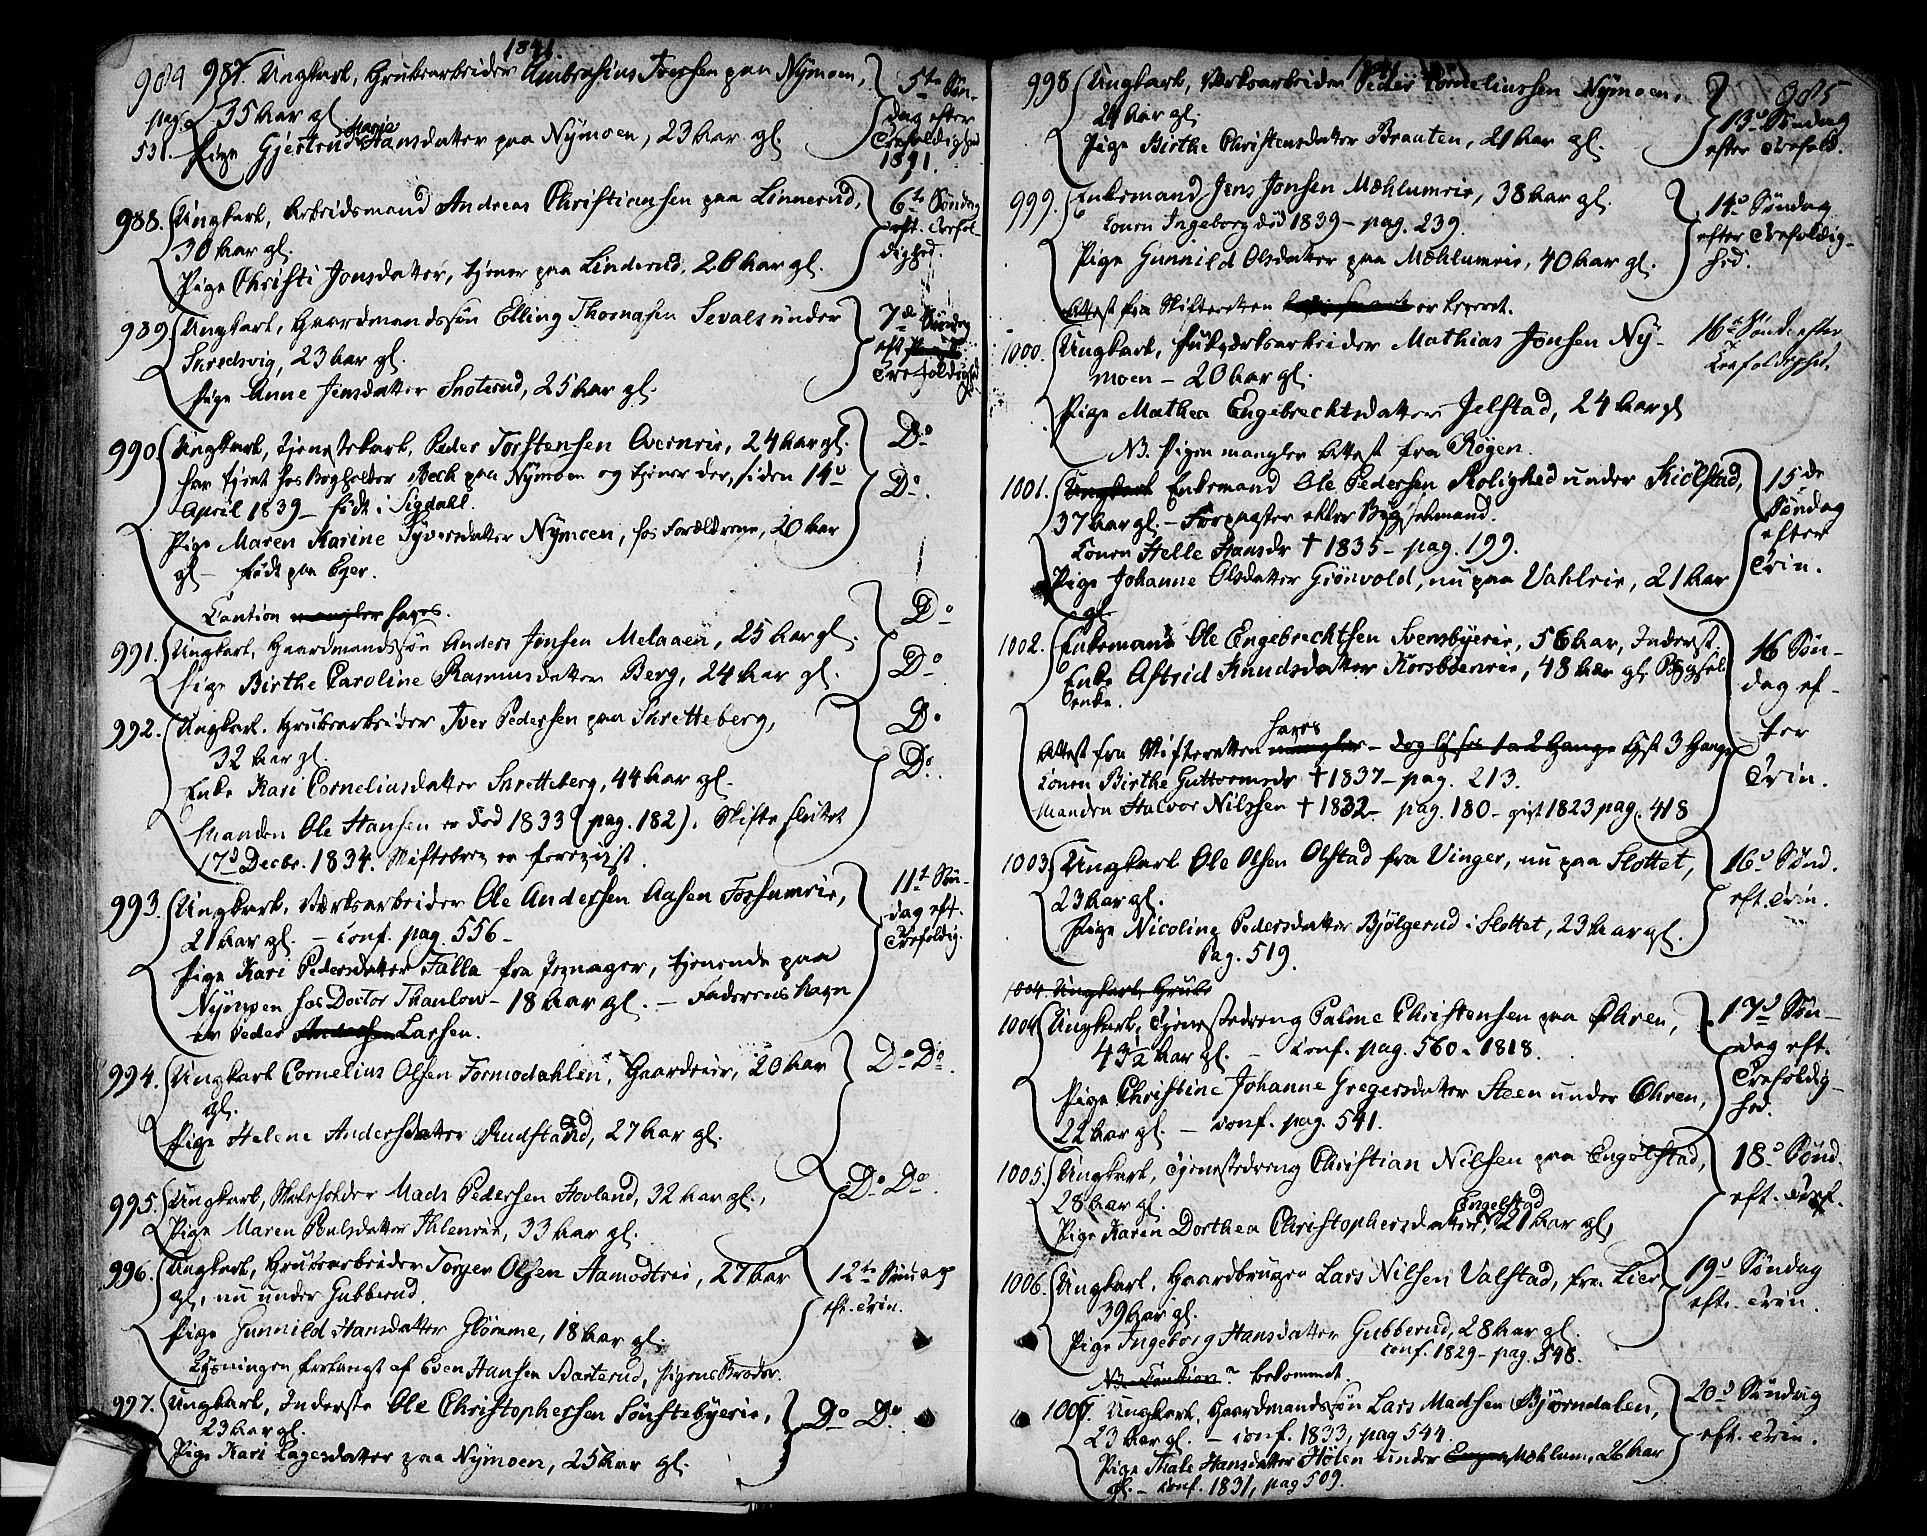 1841.
984
987. Ungkarl, Grubearbeider Ambrosius Iversen paa Nymoen,
35 Aar gl.
pag. 531.
Pige Gjertrud Marie Hansdatter paa Nymoen, 23 Aar gl.
5te Søn-
dag efter
Trefoldighed
1841.
988. Ungkarl, Arbeidsmand Andreas Christiansen paa Linnerud,
30 Aar gl.
Pige Christi Jonsdatter, tjener paa Linderud, 26 Aar gl.
6te Søndag
eft. Trefol-
dighed.
989. Ungkarl, Gaardmandssøn Elling Thomasen Sevals under
Skredsvig, 23 Aar gl.
Pige Anne Jensdatter Snoterud, 25 Aar gl.
7de Søndag
eft
Trefoldighed
990. Ungkarl, Tjenestekarl, Peder Torstensen Overnrie, 24 Aar gl.
har tjent hos Bogholder Bech paa Nymoen og tjener der, siden 14de
April 1839 - født i Sigdahl.
Pige Maren Karine Syversdatter Nymoen, hos Forældrene, 20 Aar
gl - født paa Eger.
Do
Do.
Caution mangler haves.
991. Ungkarl, Gaardmandssøn Anders Jonsen Melaaen, 25 Aar gl.
Pige Birthe Caroline Rasmusdatter Berg, 24 Aar gl.
Do
Do
992. Ungkarl, Grubearbeider Iver Pedersen paa Skretteberg,
32 Aar gl.
Enke Kari Corneliusdatter Skretteberg, 44 Aar gl.
Manden Ole Hansen er død 1833 (pag. 182). Skifte sluttet
17de Decbr. 1834. Skiftebrev er foreviist.
Do
Do.
993. Ungkarl, Værksarbeider Ole Andersen Aasen Fossumeie,
21 Aar gl. - conf. pag. 556 -
Pige Kari Pedersdatter Falla fra Jevnager, tjenende paa
Nymoen hos Doctor Thaulow - 18 Aar gl. - Faderens Navn
er Peder Andersen Larsen.
11te Søn-
dag eft.
Trefoldig.
994. Ungkarl Cornelius Olsen Formodahlen, Gaardeeie, 20 Aar
gl.
Pige Helene Andersdatter Rudstad, 27 Aar gl.
Do Do.
995. Ungkarl, Skoleholder Mads Pedersen Hovland, 32 Aar gl.,
Pige Maren Poulsdatter Ihleneie, 33 Aar gl.
Do Do.
996. Ungkarl, Grubearbeider Torger Olsen Aamodteie, 27 Aar
gl, nu under Gubberud.
Pige Gunnild Hansdatter Glomme, 18 Aar gl.
Lysningen forlangt af Even Hansen Barterud, Pigens Broder.
12te Søndag
eft. Trin.
997. Ungkarl, Inderste Ole Christophersen Sønstebyeie,
23 Aar gl.
Pige Kari Lagesdatter paa Nymoen, 25 Aar gl.
Do Do.
985
998. Ungkarl, Værksarbeider Peder Corneliussen Nymoen,
24 Aar gl.
Pige Birthe Christensdatter Brauten, 21 Aar gl.
13de Søndag
efter Trefold.
999. Enkemand, Jens Jonsen Mæhlumeie, 38 Aar gl.
Conen Ingeborg død 1839 - pag. 239.
Pige Gunnild Olsdatter paa Mæhlumeie, 40 Aar gl.
Attest fra Skifteretten er leveret.
14de Søndag
efter Trefoldig-
hed.
1000. Ungkarl, Huusværksarbeider Mathias Jonsen Ny-
moen - 20 Aar gl.
Pige Mathea Engebrechtsdatter Jelstad, 24 Aar gl
NB. Pigen mangler Attest fra Røgen.
16de Sønd. efter
Trefoldighed.
1001. Ungkarl Enkemand Ole Pedersen Rolighed under Kiölstad,
37 Aar gl. - Forpagter eller Bygselmand.
Conen Helle Hansdr † 1835 - pag. 199.
Pige Johanne Olsdatter Grönvold, nu paa Vahleie, 21 Aar
gl.
15de
Søndag
efter
Trin.
1002. Enkemand Ole Engebrechtsen Svensbyeeie, 56 Aar, Inderst,
Enke Astrid Knudsdatter Korsboeneie, 48 Aar gl. Bygsel-
enke.
Attest fra Skifteretten mangler haves - dog lyses 1 a 2 Gange lyst 3 Gange
Conen Birthe Guttormsdr † 1837 - pag. 213.
Manden Halvor Nilssen † 1832 - pag. 180 - gift 1823 pag. 418
16 Søn-
dag ef-
ter
Trin.
1003. Ungkarl Ole Olsen Olstad fra Vinger, nu paa Slottet,
23 Aar gl.
Pige Nicoline Pedersdatter Bjölgerud i Slottet, 23 Aar gl.
Pag. 519.
16de Sønd.
eft. Trin.
1004. Ungkarl, Grube
1004. Ungkarl, Tjenestedreng Palme Christensen paa Ohren,
43½ Aar gl. - Conf. pag. 560. 1818.
Pige Christine Johanne Gregersdatter Steen under Ohren,
22 Aar gl. - conf. pag. 541.
17de Søn-
dag eft.
Trefoldig-
hed.
1005. Ungkarl, Tjenestedreng Christian Nilsen paa Engolstad,
28 Aar gl.
Pige Karen Dorthea Christophersdatter Engelstad, 21 Aar gl,
18de Sønd.
eft. Tref.
1006. Ungkarl, Gaardbruger Lars Nilsen Valstad, fra Lier,
39 Aar gl.
Pige Ingeborg Hansdatter Gubberud, 28 Aar gl.
conf. 1829 - pag. 548.
NB. Caution? bekommet
19de Søndag
eft. Trin.
1007. Ungkarl, Gaardmandssøn Lars Madsen Bjørndalen,
23 Aar gl. - conf. 1833, pag 544.
Pige Thale Hansdatter Hølen under Mæhlum, 26 Aar
gl. - conf. 1831, pag 509.
20de Søndag
eft. Trin.